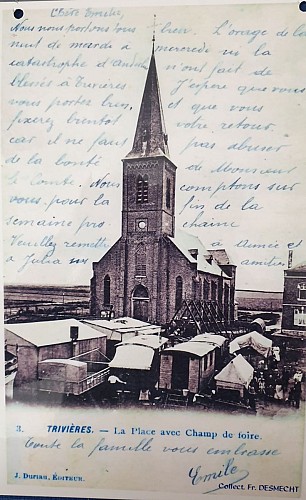 Chère Émilie,
Nous nous portons tous bien. L'orage de la
nuit de mardi à mercredi ni la
catastrophe d'
n'ont fait de
blessés à Trivières. J'espère que vous
vous portez bien et que vous
fixerez bientôt votre retour.
car il ne faut pas abuser
de la bonté de Monsieur
le Comte. Nous comptons sur
vous pour la fin de la
semaine pro chaine
Veuillez remettre à Aimée et
à Julia amitiés
3. TRIVIÈRES. — La Place avec Champ de foire.
Toute la famille vous embrasse
Emile
J. Duriau, ÉDITEUR.
Collect. Fr. DESMECHT